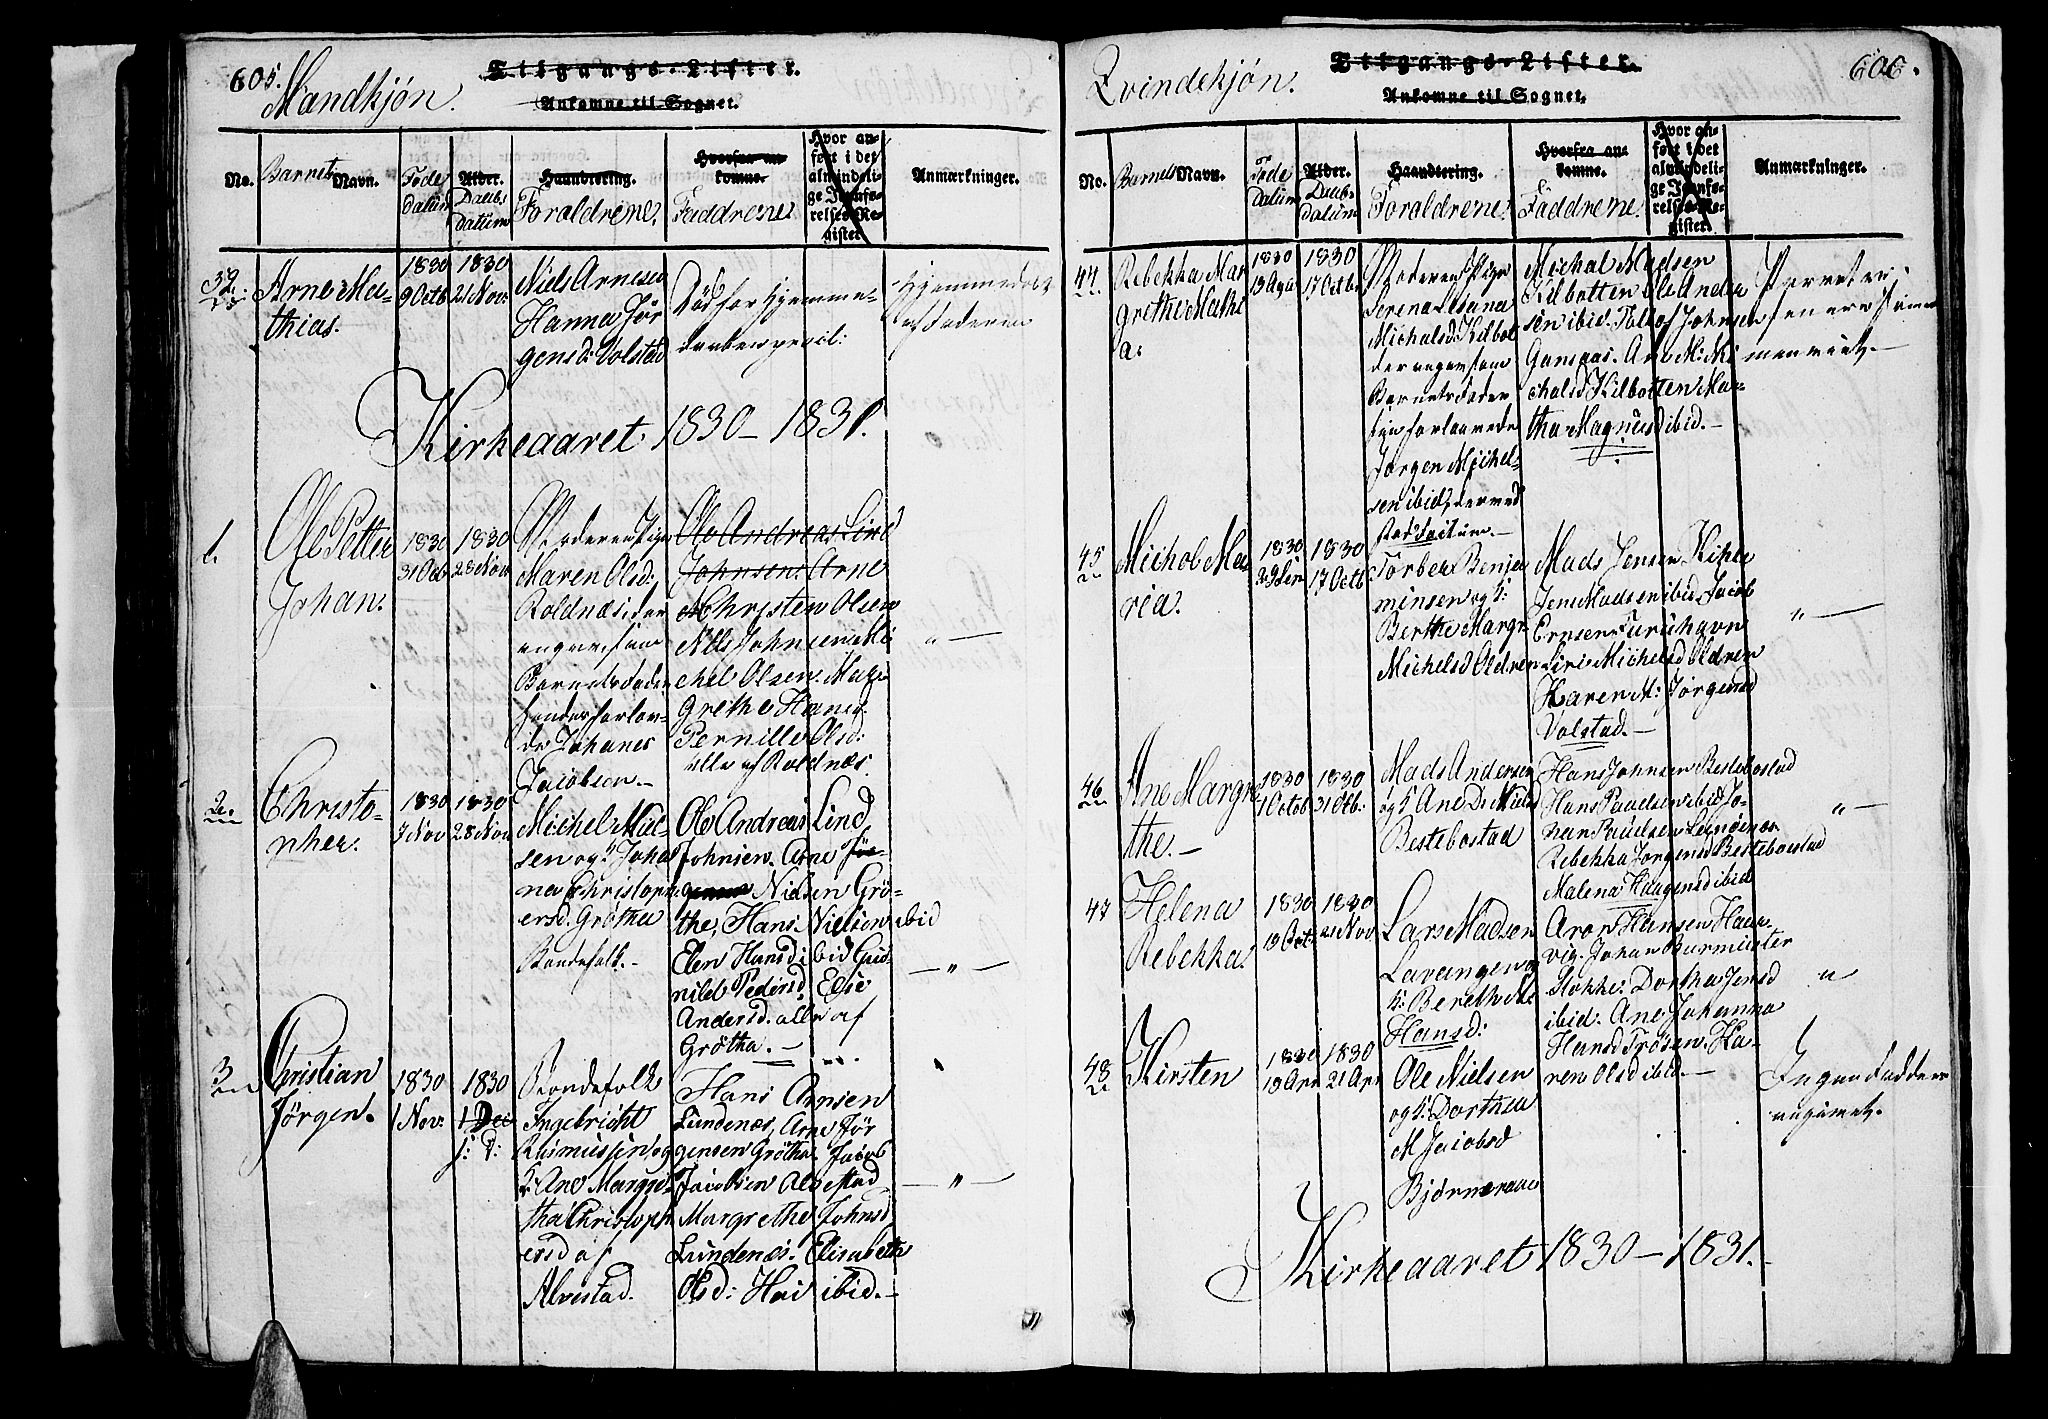 605.
Mandkjön.
Tilgangs-Lister.
Ankomne til Sognet.
No.
Barnets Navn.
Føde datum
Alder. Daabs datum
Haandtering. Foraldrene.
Hvorfra ankomne. Faddrene.
Hvor anført i det almindelige Jevnførelses-Register
Anmærkninger.
39.
Arne Ma-
thias.
1830
9 Octb
1830
21 Nov:
Niels Arnesen
Hanna Jör
gensd: Volstad
Död for Hjemme-
daaben
Hjemmedöbt
af Faderen
Kirkeaaret 1830 - 1831.
1.
Ole Petter
Johan.
1830
31 Octb
1830
28 Nov
Moderen Pige
Maren Olsd:
Roldnæs der
angav som
Barnets Fader
hendes forlov-
de Johanes
Jacobsen.-
Ole Andreas Lind
Johnsen. Arne
Christen Olsen
Nils Johnsen Mi
chel Olsen. Mar
grethe Hansd.
Pernille Olsd:
alle af Roldnæs.
" —
2.
Christo-
pher.
1830
7 Nov
1830
28 Nov.
Michel Niel-
sen og K Joha
na Christoph
ersd. Grötha
Bondefolk.-
Ole Andreas Lind
Johnsen. Arne Jör-
gensen Nielsen Grö-
the, Hans Nielsen ibid
Elen Hansd ibid Gu-
nild Pedersd. Elsie
Andersd. alle af
Grötha. -
— " —
3
Christian
Jörgen.
1830
1 Nov:
1830
1 Dec
Bondefolk
Ingebricht
Rasmussen og
K: Ane Margre
tha Christoph
ersd af
Alvestad.
Hans Arnsen
Lundenæs, Arne Jör
gensen Grötha. Jacob
Jacobsen Alvestad
Margrethe Johnsd
Lundenæs. Elisabeth
Olsd: Hov ibid.-
— " —
606.
Qvindekjön.
Tilgangs-Lister.
Ankomne til Sognet.
No.
Barnets Navn.
Føde datum
Alder. Daabs datum
Haandtering. Foraldrene.
Hvorfra ankomne. Faddrene.
Hvor anført i det almindelige Jevnførelses-Register
Anmærkninger.
44
Rebekka Mar
grethe Mathe
a.
1830
1830
17 Octb
Moderen Pige
Serena Lisana
Michalsd: Kilbot
der angav som
Barnets Fader
sin forlovede
Jörgen Michel-
sen ibid
Factum.-
Michal Madsen
Kilbotten Ole Ander
sen ibid. Tol of Johnsen
Gansaas. Ane M. Mi
chalsd Kilbotten Ma-
tha Magnusd ibid.-
45
Michol Ma
ria.
1830
1830
17 Octb
Torber Benja
minsen og K:
Berthe Margr.
Michelsd Oldren
Mads Jensen Kihle
Jens Madsen ibid. Jacob
Ernsen
Siri Michelsd Oldren
Karen M: Jörgensd
Volstad. -
" —
46
Ane Margre
the. -
1830
1 Octob
1830
31 Otb:
Mads Andersen
og K Ane D: Nielsd
Bestebostad
Hans Johnsen Bestebostad
Hans Paulsen ibid Jo-
han Paulsen
Rebekka Jörgensd Bestebostad
Malena Haagensd ibid
" —
47
Helena
Rebekka.
1830
1830
21 Nov
Lars Madsen
Lavangen og
K: Bereth M
Hansd:
Aron Hansen Haar-
vig. Johan Burmeister
Stokke. Dorthea Jensd
ibid. Ane Johanna
Hansd Trösen. Ka-
ren Olsd ibid. -
"
48
Kirsten
1830
1830
21 Apr
Ole Nielsen
og K: Dorthea
M Jacobsd
Bjørneraae
Ingen Faddere
angivet.
Kirkeaaret 1830 — 1831.